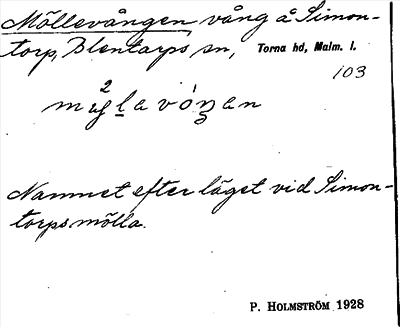 Möllevången, vång å Simon-
torp, Blentarps sn, Torna hd, Malm. l.
103
Namnet efter läget vid Simon-
torps mölla.
P. HOLMSTRÖM 1928